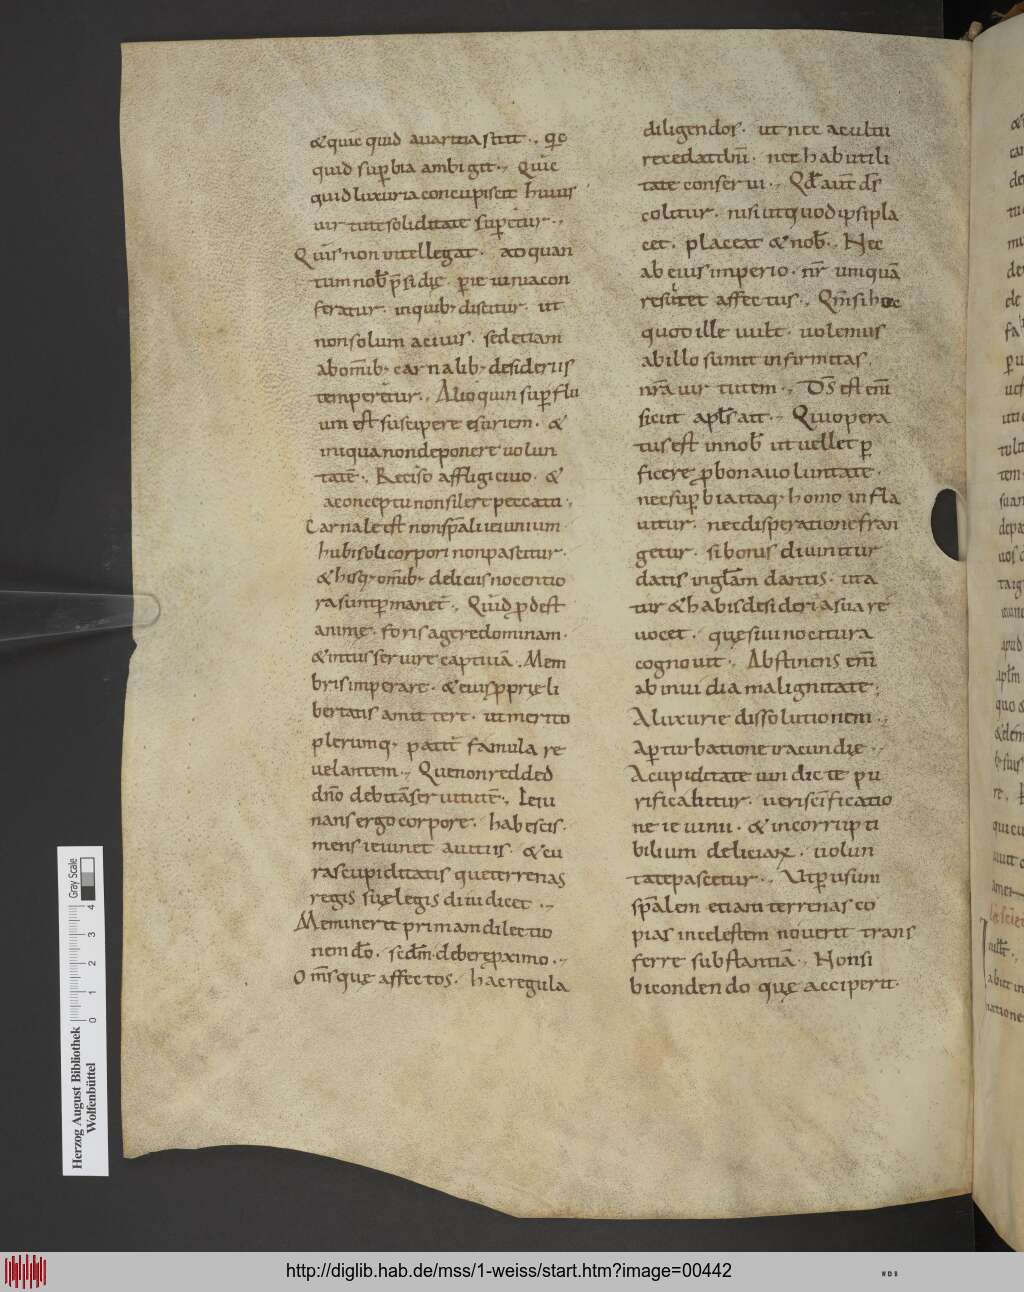 &quic quid auaritia sitit., qđ
quid sup̱bia ambigit., Quic
quid luxuria concupiscit huius
uirtutis soliditate sup̱etur.,
Quis non intellegat. ad quan
tum nob̄ p̄sidiȩ. p̱ ieiunia con
feratur. inquib; discitur. ut
non solum a cibis. sed etiam
ab om̄ib; carnalib; desideriis
temperetur., Alioquin sup̱flu
um est suscipere esuriem. &
iniqua non deponere uolun
tatē., Reciso affligi cibo. &
a conceptu non silere peccatu.,
Carnale est non sp̄ali ieiunium
hubi soli corpori non pascitur.
& hisq; om̄ib; deliciis nocentio
ra sunt p̱manet., Quid prodest
animȩ. foris agere dominam.
& intus seruire captiuā., Mem
bris imperare. & eius pp̱rie li
bertatis amittere. ut merito
plerumq; patit̄ famula re
uelantem., Que non redded
dn̄o debitā seruitutē., Ieiu
nans ergo corpore. hab escis.
mens ieiunet a uitiis. & cu
ras cupiditatis que terrenas
regis suȩ legis diiudicet.,
Meminerit primam dilectio
nem dō. sedm̄ debere ꝓximo.,
Om̄sque affectos. hac regula
diligendos. ut nec a cultu
recedat dn̄i. nec hab utili
tate conserui., Qđ aut̄ d̄s
colitur. nisi ut quod ipsi pla
cet. placeat & nob̄., Nec
ab eius imperio. nr̄ umquā
resultet affectus., Qm̄ si hoc
quod ille uult. uolemus
ab illo sumit infirmitas.
nr̄a uirtutem., D̄s est eni̅
sicut apl̄s ait., Qui opera
tus est in nob̄ ut uelle & p̱
ficere pro bona uoluntate.
nec sup̱bia itaq; homo infla
uitur. nec disperatione fran
getur. si bonis diuinitur
datis in glām dantis. uta
tur & hab is desideria sua re
uocet. quȩ siui nocitura
cognouit., Abstinens eni̅
ab inuidia malignitate.,
A luxurie dissolutionem.,
A p̱turbatione iracundiȩ.,
A cupiditate uindictȩ pu
rificabitur. ueri sc̄ificatio
ne ieiunii. & incorrupti
bilium deliciarꝝ. uolun
tate pascetur., Ut p̱ usum
sp̄alem etiam terrenas co
pias in celestem nouerit trans
ferre substantiā., Non si
bi condendo quȩ acciperit.
Gray Scale
4
3
2
1
0
Herzog August Bibliothek
Wolfenbüttel
http://diglib.hab.de/mss/1-weiss/start.htm?image=00442